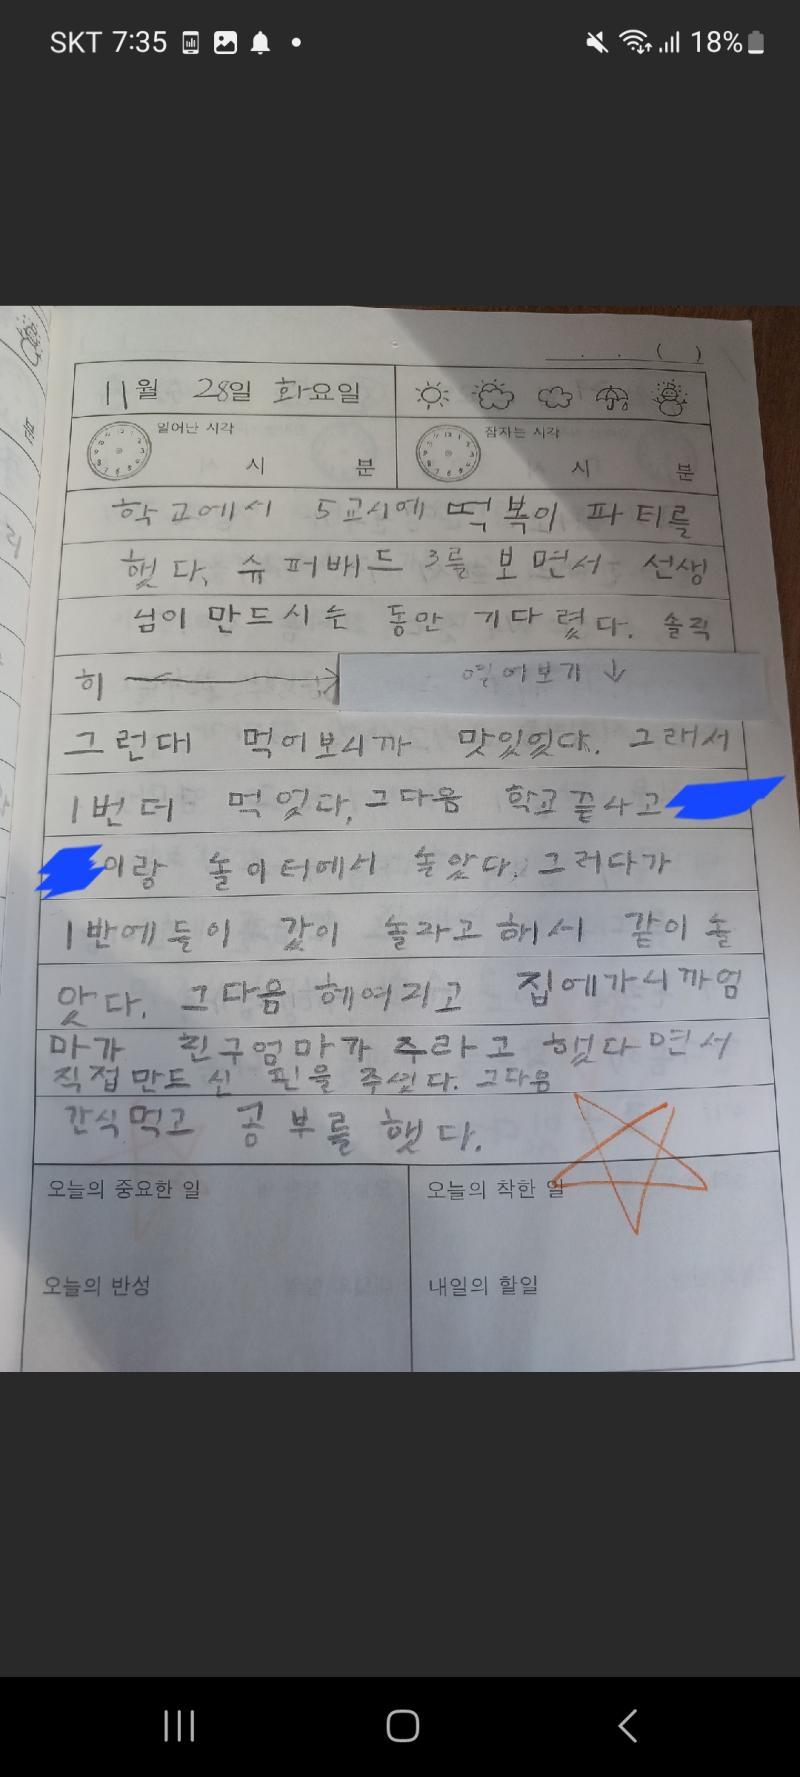 SKT 7:35
18%
. . ( )
11월 28일 화요일
일어난 시각
시 분
잠자는 시각
시 분
학교에서 5교시에 떡복이 파티를
했다. 슈퍼배드 3를 보면서 선생
님이 만드시는 동안 기다렸다. 솔직
히
열어보기 ↓
그런대 먹어보니까 맛있있다. 그래서
1번 더 먹었다. 그다음 학교끝나고
이랑 놀이터에서 놀았다. 그러다가
1반에들이 같이 놀라고 해서 같이 놀
았다. 그다음 헤어지고 집에가니까엄
마가 친구엄마가 주라고 했다면서
직접만드신 핀을 주었다. 그다음
간식먹고 공부를 했다.
오늘의 중요한 일
오늘의 착한 일
오늘의 반성
내일의 할일